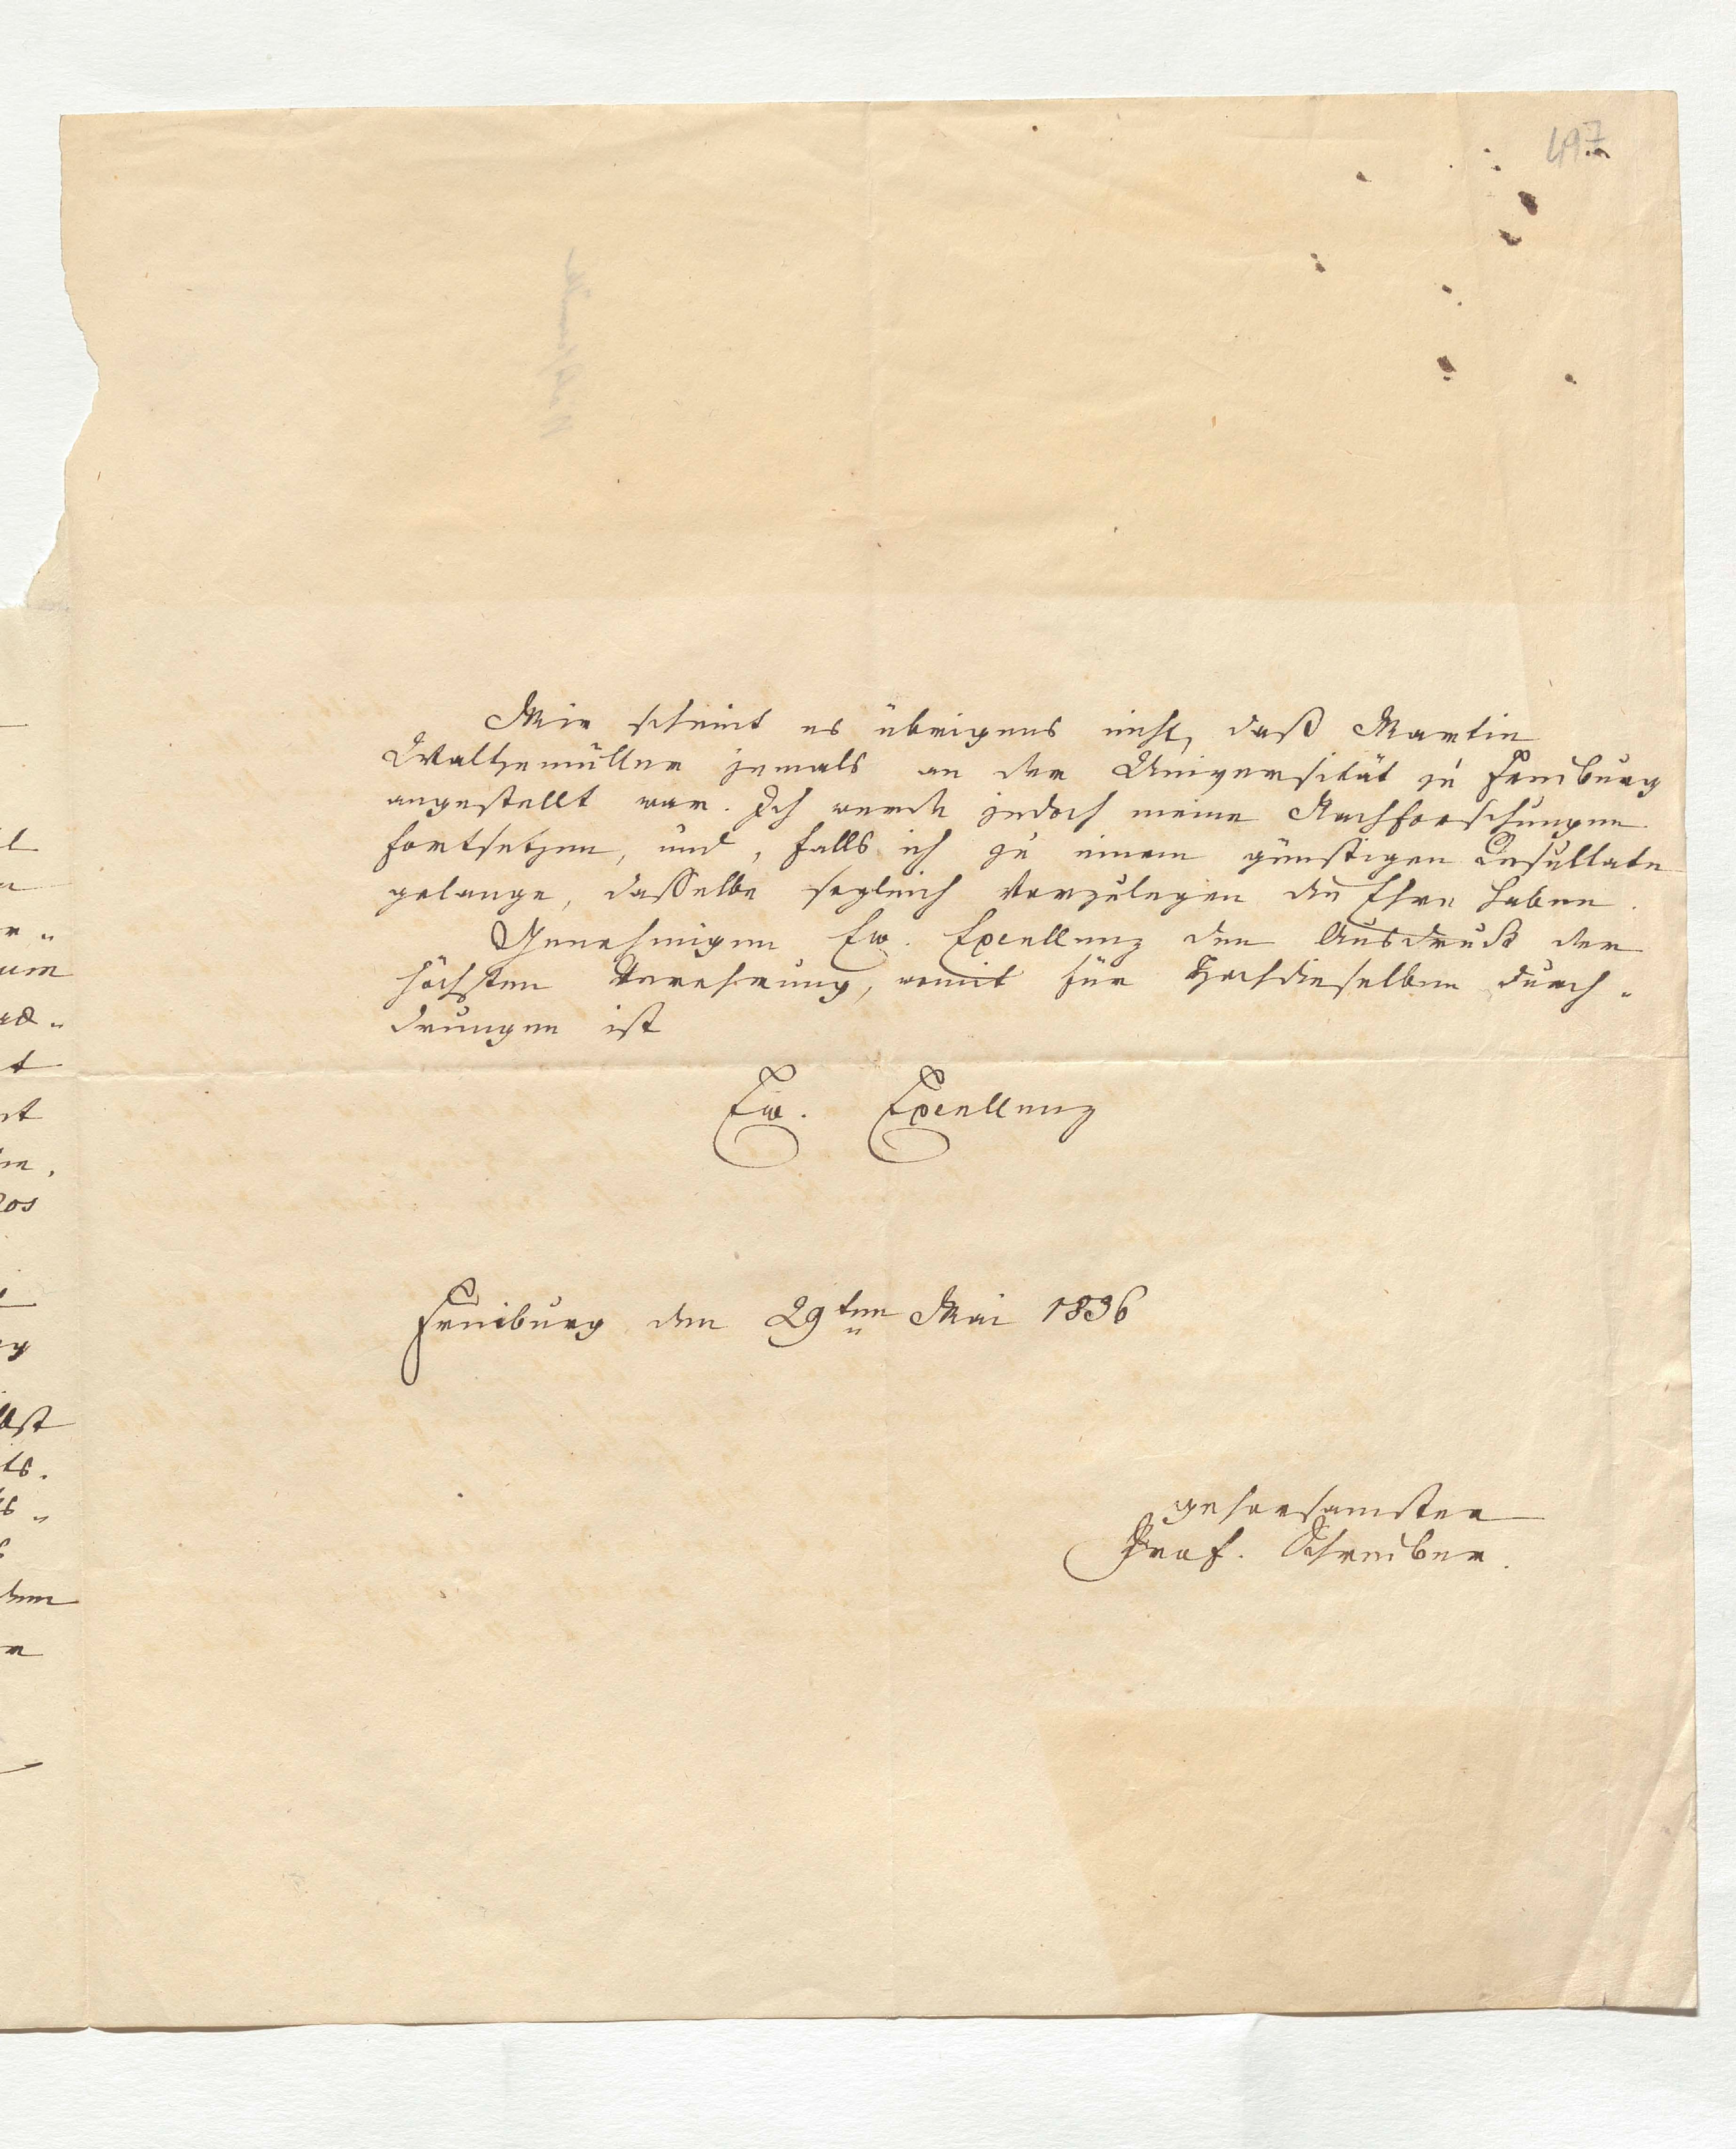 497
Mir scheint es übrigens nicht, daß Martin
Waltzemüller jemals an der Universität zu Freiburg
angestellt war. Ich werde jedoch meine Nachforschungen
fortsetzen, und, falls ich zu einem günstigen Resultate
gelange, dasselbe sogleich vorzulegen die Ehre haben.
Genehmigen Ew. Excellenz den Ausdruck der
höchsten Verehrung, womit für Hochdieselben durch„
drungen ist
Ew. Excellenz
Freiburg den 29ten Mai 1836
gehorsamster
Prof. Schreiber.